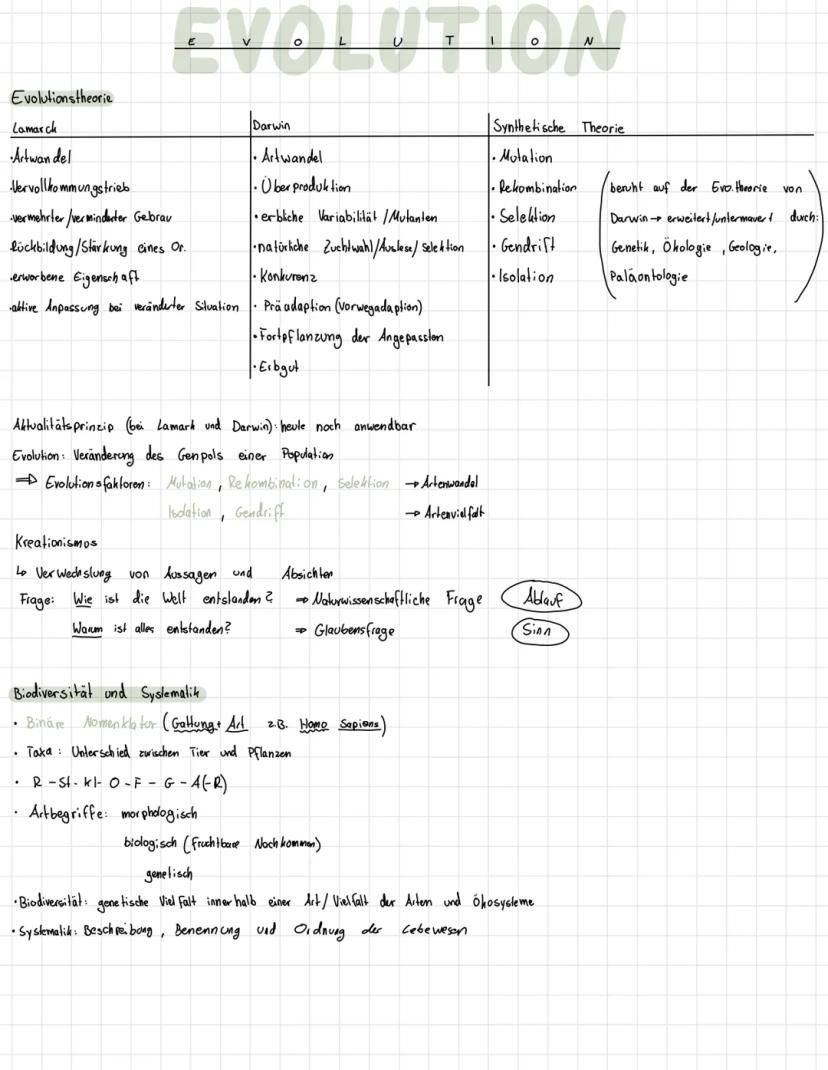 EVOLUTION
E V O L U T I O N
Evolutionstheorie
Lamarck
·Artwandel
·Vervollkommungstrieb
·vermehrter/verminderter Gebrau
Rückbildung/Stärkung eines Or.
·erworbene Eigenschaft
·aktive Anpassung bei veränderter Situation
Darwin
· Artwandel
· Überproduktion
· erbliche Variabilität /Mutanten
·natürliche Zuchtwahl/Auslese/Selektion
· Konkurenz
· Präadaption (Vorwegadaption)
·Fortpflanzung der Angepassten
·Erbgut
Synthetische Theorie
· Mutation
· Rekombination
· Selektion
· Gendrift
· Isolation
(beruht auf der Evo.theorie von
Darwin → erweitert/untermauert durch:
Genetik, Ökologie, Geologie,
Paläontologie)
Aktualitätsprinzip (bei Lamark und Darwin): heute noch anwendbar
Evolution: Veränderung des Genpols einer Population
⇒ Evolutionsfaktoren: Mutation, Rekombination, Selektion → Artenwandel
Isolation, Gendrift → Artenvielfalt
Kreationismus
↳ Verwechslung von Aussagen und Absichten
Frage: Wie ist die Welt entstanden? ⇒ Naturwissenschaftliche Frage Ablauf
Warum ist alles entstanden? ⇒ Glaubensfrage Sinn
Biodiversität und Systematik
· Binäre Nomenklatur (Gattung + Art z.B. Homo Sapiens)
· Taxa: Unterschied zwischen Tier und Pflanzen
· R - St - Kl - O - F - G - A(-R)
· Artbegriffe: morphologisch
biologisch (fruchtbare Nachkommen)
genetisch
·Biodiversität: genetische Vielfalt innerhalb einer Art/Vielfalt der Arten und Ökosysteme
·Systematik: Beschreibung, Benennung und Ordnung der Lebewesen